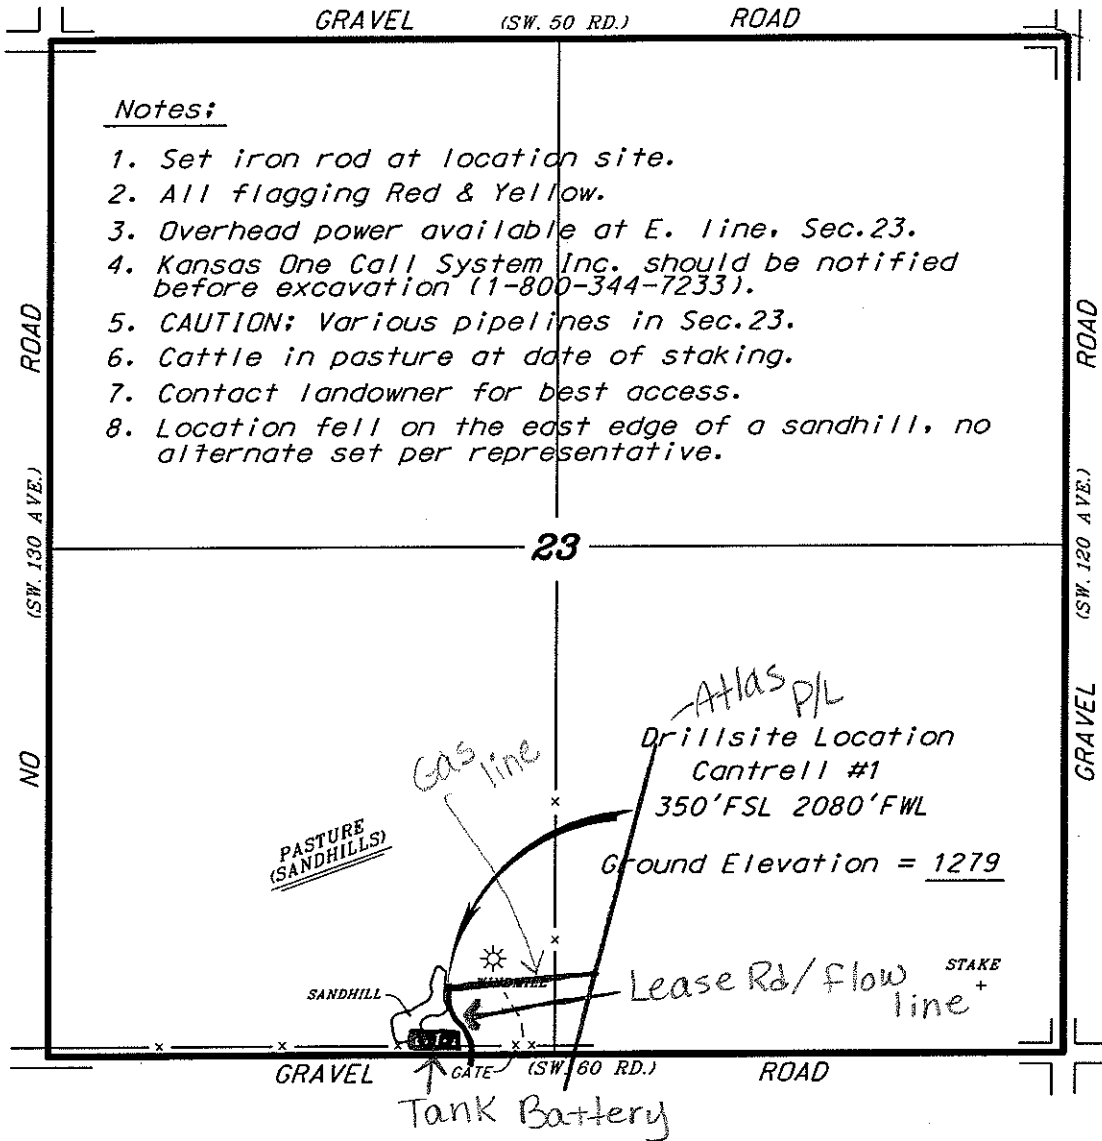 GRAVEL (SW. 50 RD.) ROAD
Notes:
1. Set iron rod at location site.
2. All flagging Red & Yellow.
3. Overhead power available at E. line, Sec.23.
4. Kansas One Call System Inc. should be notified
before excavation (1-800-344-7233).
5. CAUTION: Various pipelines in Sec.23.
6. Cattle in pasture at date of staking.
7. Contact landowner for best access.
8. Location fell on the east edge of a sandhill, no
alternate set per representative.
NO (SW. 130 AVE.) ROAD
23
GRAVEL (SW. 120 AVE.) ROAD
Atlas P/L
Drillsite Location
Cantrell #1
350'FSL 2080'FWL
Ground Elevation = 1279
Gas line
PASTURE
(SANDHILLS)
WINDMILL
SANDHILL
Lease Rd/flow line
STAKE
GATE
GRAVEL (SW. 60 RD.) ROAD
Tank Battery